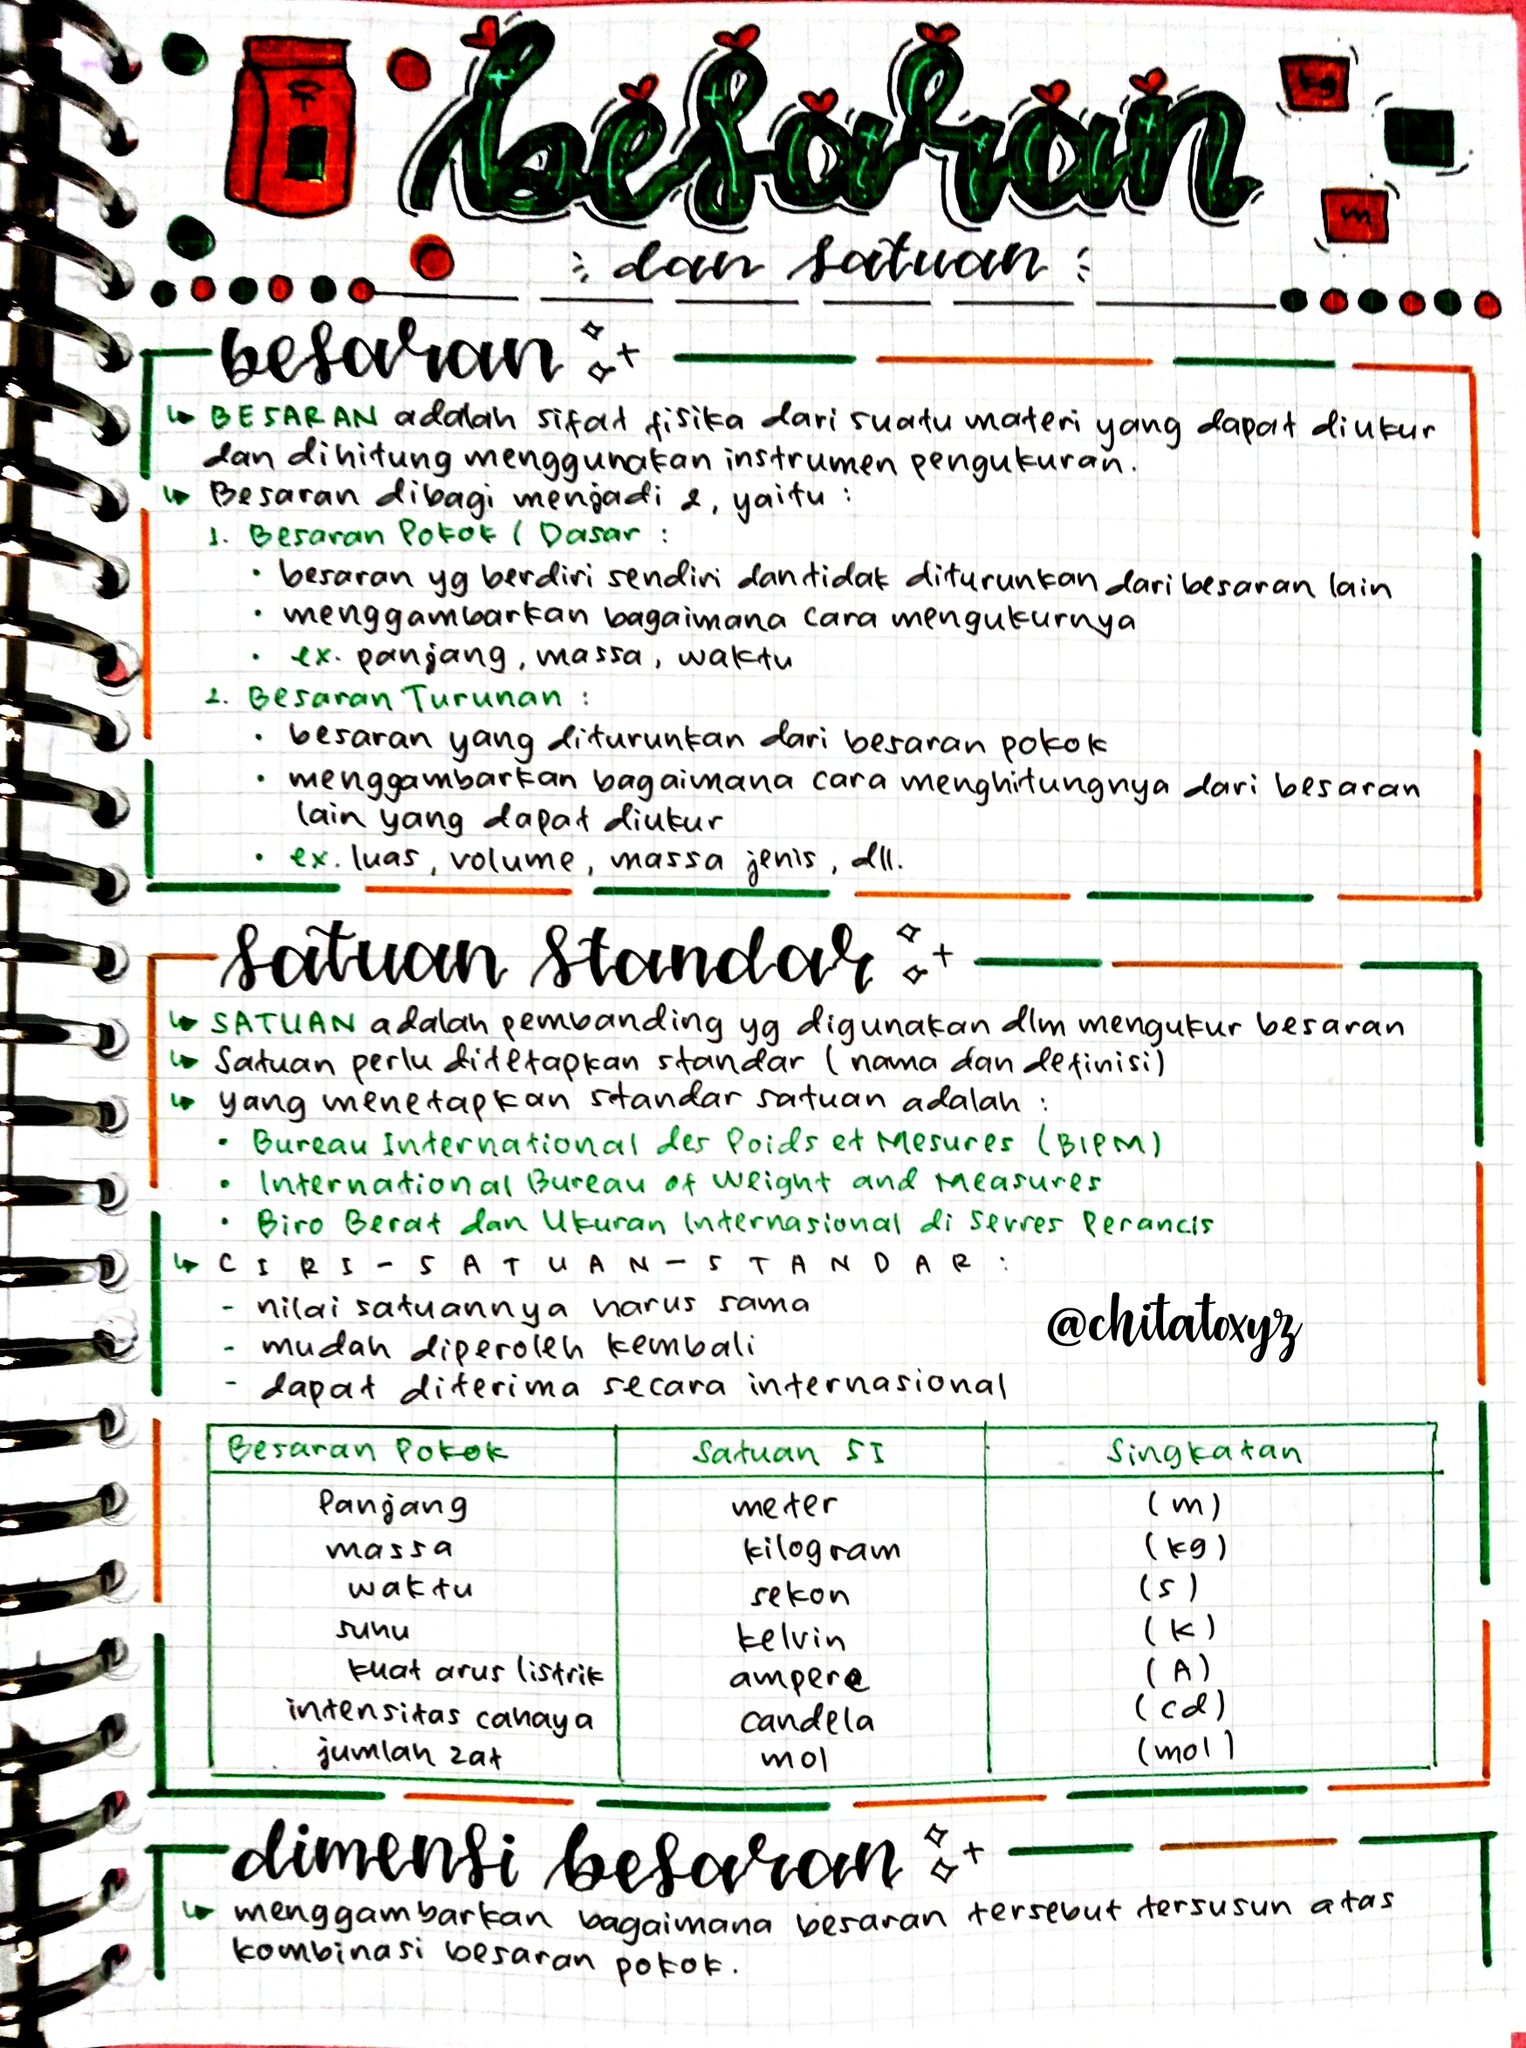 kg
m
besaran
dan satuan
besaran
BESARAN adalah sifat fisika dari suatu materi yang dapat diukur
dan dihitung menggunakan instrumen pengukuran.
Besaran dibagi menjadi 2, yaitu :
1. Besaran Pokok / Dasar :
• besaran yg berdiri sendiri dan tidak diturunkan dari besaran lain
• menggambarkan bagaimana cara mengukurnya
• ex. panjang, massa, waktu
2. Besaran Turunan :
• besaran yang diturunkan dari besaran pokok
• menggambarkan bagaimana cara menghitungnya dari besaran
lain yang dapat diukur
• ex. luas, volume, massa jenis, dll.
satuan standar
SATUAN adalah pembanding yg digunakan dlm mengukur besaran
Satuan perlu ditetapkan standar (nama dan definisi)
yang menetapkan standar satuan adalah :
• Bureau International des Poids et Mesures (BIPM)
• International Bureau of Weight and Measures
• Biro Berat dan Ukuran Internasional di Sevres Perancis
CIRI-SATUAN-STANDAR :
- nilai satuannya harus sama
- mudah diperoleh kembali
- dapat diterima secara internasional
@chitatoxyz
Besaran Pokok Satuan SI Singkatan
Panjang meter (m)
massa kilogram (kg)
waktu sekon (s)
suhu kelvin (K)
kuat arus listrik ampere (A)
intensitas cahaya candela (cd)
jumlah zat mol (mol)
dimensi besaran
menggambarkan bagaimana besaran tersebut tersusun atas
kombinasi besaran pokok.